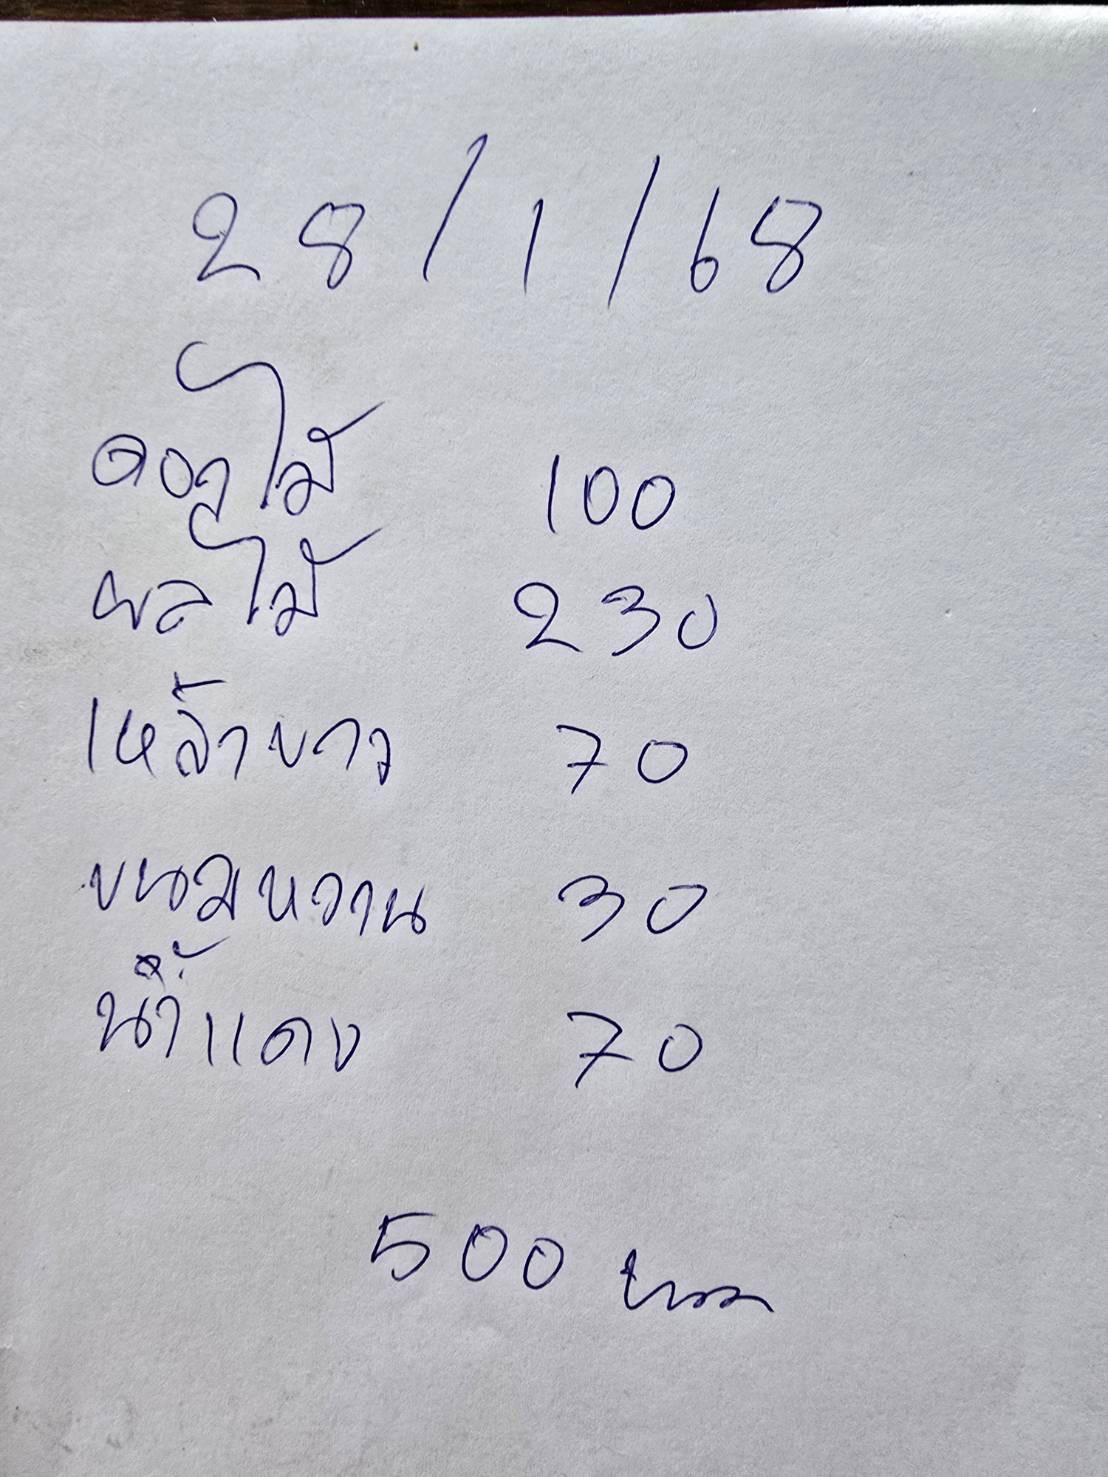 28/1/68
ดอกไม้ 100
ผลไม้ 230
เหล้าขาว 70
ขนมหวาน 30
น้ำแดง 70
500 บาท